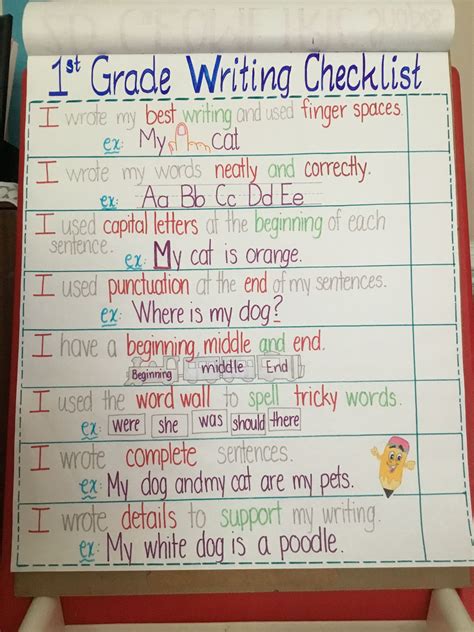 1st Grade Writing Checklist
I wrote my best writing and used finger spaces.
ex: My cat
I wrote my words neatly and correctly.
ex: Aa Bb Cc Dd Ee
I used capital letters at the beginning of each
sentence. ex: My cat is orange.
I used punctuation at the end of my sentences.
ex: Where is my dog?
I have a beginning, middle and end.
Beginning middle End
I used the word wall to spell tricky words.
ex: were she was should there
I wrote complete sentences.
ex: My dog and my cat are my pets.
I wrote details to support my writing.
ex: My white dog is a poodle.